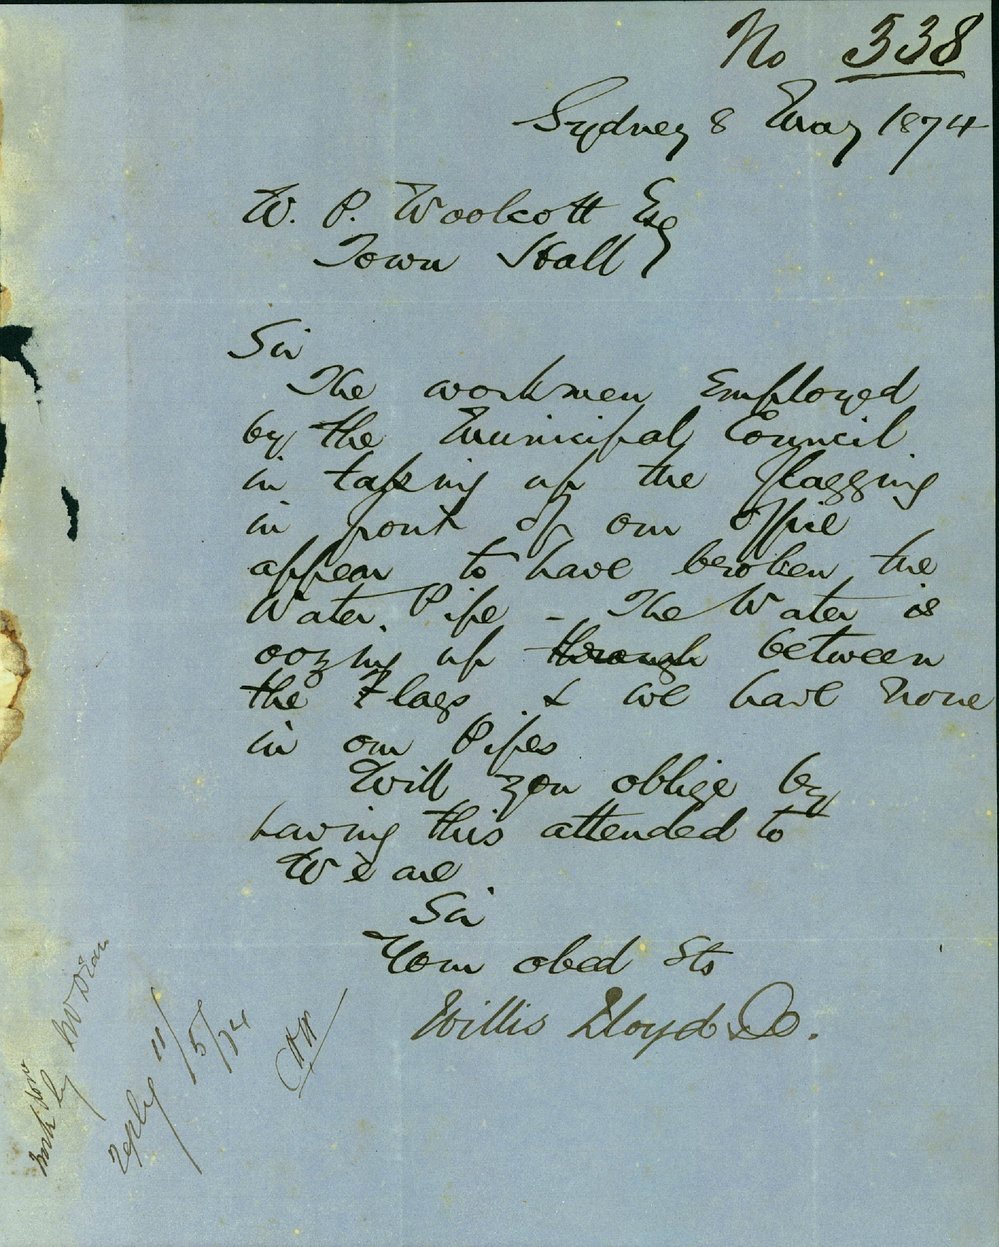 No 538
Sydney 8 May 1874
W. P. Woolcott Esq
Town Hall
Sir
The workmen Employed
by the Municipal Council
in taking up the flagging
in front of our office
appear to have broken the
Water Pipe - The Water is
oozing up through between
the Flags & we have None
in our Pipes
Will you oblige by
having this attended to
We are
Sir
Your obed Sts
Willis Lloyd & Co.
work done
by
reply 11/5/74